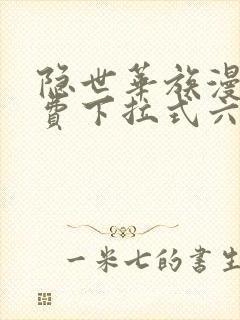 隐世华族漫
费下拉式六
一米七的书生